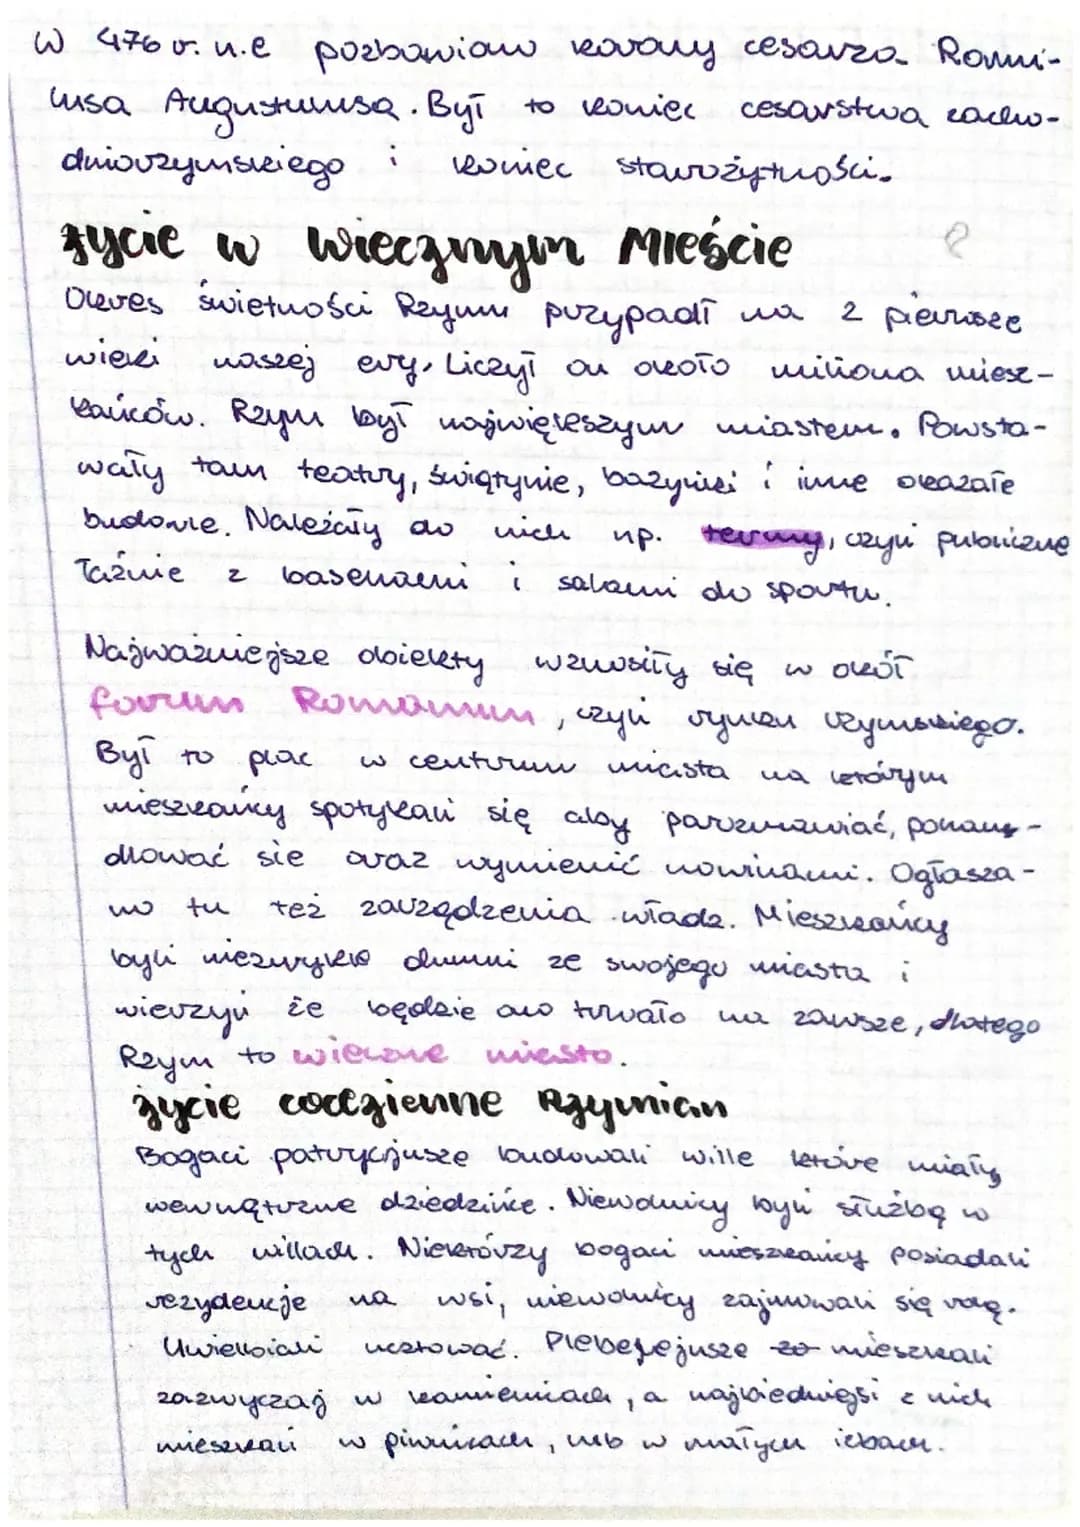 w 476 r. n.e pozbawiono korony cesarza Romu-
lusa Augustulusa. Był to koniec cesarstwa zacho-
dniorzymskiego i koniec starożytności.
życie w wiecznym Mieście
Okres świetności Rzymu przypadł na 2 pierwsze
wieki naszej ery. Liczył on około miliona miesz-
kańców. Rzym był największym miastem. Powsta-
wały tam teatry, świątynie, bazyliki i inne okazałe
budowle. Należały do nich np. termy, czyli publiczne
łaźnie z basenami i salami do sportu.
Najważniejsze obiekty wznosiły się w okół
forum Romanum, czyli rynku rzymskiego.
Był to plac w centrum miasta na którym
mieszkańcy spotykali się aby porozmawiać, pohan-
dlować sie oraz wymienić nowinami. Ogłasza-
no tu też zarządzenia władz. Mieszkańcy
byli niezwykle dumni ze swojego miasta i
wierzyli że będzie ono trwało na zawsze, dlatego
Rzym to wieczne miasto.
życie codzienne Rzymian
Bogaci patrycjusze budowali wille które miały
wewnątrzne dziedzińce. Niewolnicy byli służbą w
tych willach. Niektórzy bogaci mieszkańcy posiadali
rezydencje na wsi, niewolnicy zajmowali się rolą.
Uwielbiali ucztować. Plebejusze mieszkali
zazwyczaj w kamienicach, a najbiedniejsi z nich
mieszkali w piwnicach, lub w małych izbach.